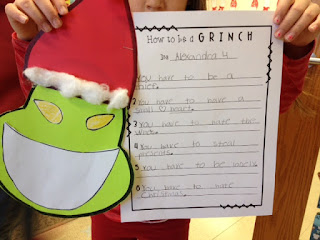 How to be a GRINCH
By: Alexandra H
1 You have to be a
thief.
2 You have to have a
small heart.
3 You have to hate the
whos.
4 You have to steal
presents.
5 You have to be
6 You have to hate
Christmas.